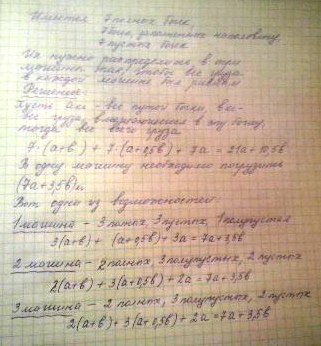 Имеется 7 полных бочек,
7 бочек, заполненных наполовину
7 пустых бочек
Их нужно распределить в три
чтобы вес груза
в каждой машине был равным
Решение:
Пусть а кг - вес пустой бочки, в кг -
вес груза, в эту бочку,
тогда вес всего груза
7·(а+в) + 7·(а+0,5в) + 7а = 21а + 10,5в
В одну машину необходимо погрузить
(7а + 3,5в) кг
Вот одна из возможностей:
1 машина - 3 полных, 3 пустых, 1 полупустая
3(а+в) + (а+0,5в) + 3а = 7а + 3,5в
2 машина - 2 полных 3 полупустых, 2 пустых
2(а+в) + 3(а+0,5в) + 2а = 7а + 3,5в
3 машина - 2 полных, 3 полупустых, 2 пустых
2(а+в) + 3(а+0,5в) + 2а = 7а + 3,5в